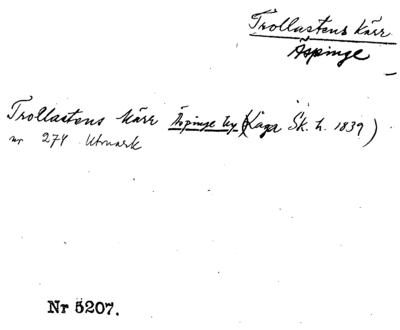 Trollastens Kärr
Äspinge
Trollastens Kärr Äspinge by (Laga Sk. h. 1839)
nr 274 Utmark
Nr 5207.